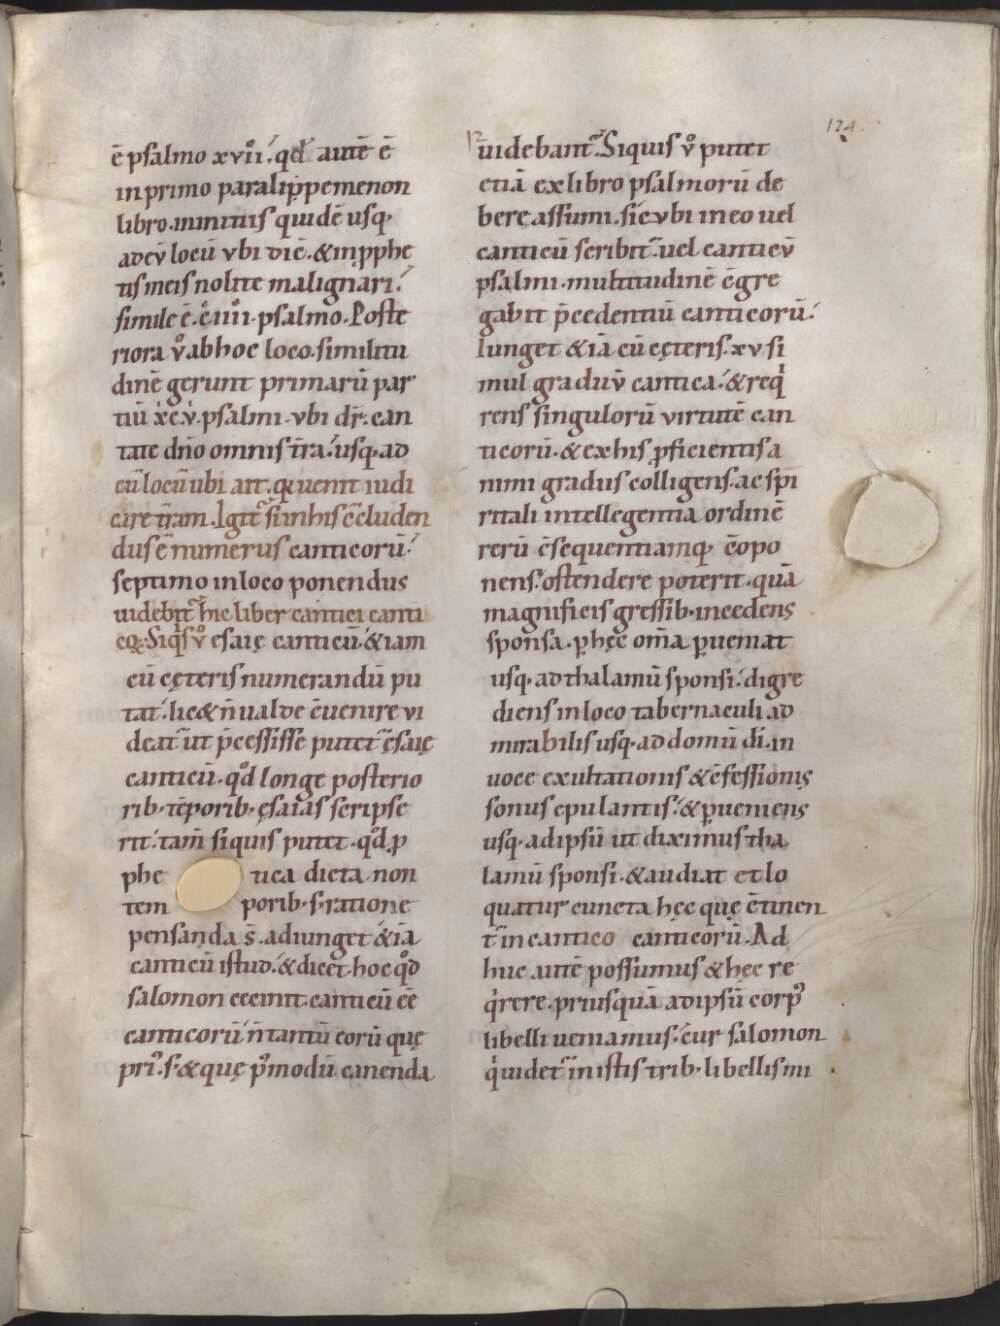 124.
ē psalmo xvııº. qď autē ē
in primo paralippemenon
libro. in initiis quidē usq;
ad ev̄ locū vbi dič. & in pphe
tis meis nolite malignari.
simile ē. c̊ iıııº. psalmo. Poste
riora v̊ ab hoc loco. similitu
dinē gerunt primarū par
tiū xc̊ v̊. psalmi. vbi dr̄. can
tate dn̄o omnis t̄ra. usq; ad
eū locū ubi ait. q̄ uenit iudi
care t̄ram. Igit̄ si in his c̄cluden
dus ē numerus canticorū.
septimo in loco ponendus
uidebit̄ hic liber cantici canti
coȝ. Siq̇s v̊ esaię canticū. & iam
cū cęteris numerandū pu
tat. lic& n̄ ualde c̄uenire vi
deat̄ ut p̄cessisse putet̄ ęsaię
canticū. qď longe posterio
rib; tēporib; ęsaias scripse
rit. tam̄ siquis putet. qď p
phe tica dicta non
tem porib; s; ratione
pensanda s̄. adiunget & iā
canticū istud. & dicet hoc qď
salomon cecinit. canticū ēē
canticorū n̄ tantū eorū quę
pri͛. s; & quę p̊modū canenda
uidebant̄. Siquis v̊ putet
etiā ex libro psalmorū de
bere assumi. sic vbi in eo uel
canticū scribit̄. uel canticv̄
psalmi. multitudinē c̄gre
gabit p̄cedentiū canticorū.
Iunget & iā cū cęteris. xv si
mul graduv̄ cantica. & req̇
rens singulorū virtutē can
ticorū. & ex his p̄ficientis a
nimi gradus colligens. ac spi
ritali intellegentia ordinē
rerū c̄sequentiamq; c̄opo
nens. ostendere poterit. quā
magnificis gressib; incedens
sponsa. p hęc om̄a pueniat
usq; ad thalamū sponsi. digre
diens in loco tabernaculi ad
mirabilis usq; ad domū dı̄. in
uoce exultationis & c̄fessionis
sonus epulantis. & pueniens
usq; ad ipsū ut diximus tha
lamū sponsi. & audiat et lo
quatur cuncta hęc quę c̄tinen
t̄ in cantico canticorū. Ad
huc autē possumus & hęc re
q̇rere. priusquā ad ipsū corp͛
libelli ueniamus. cur salomon
q̇ uidet̄ in istis trib; libellis mi